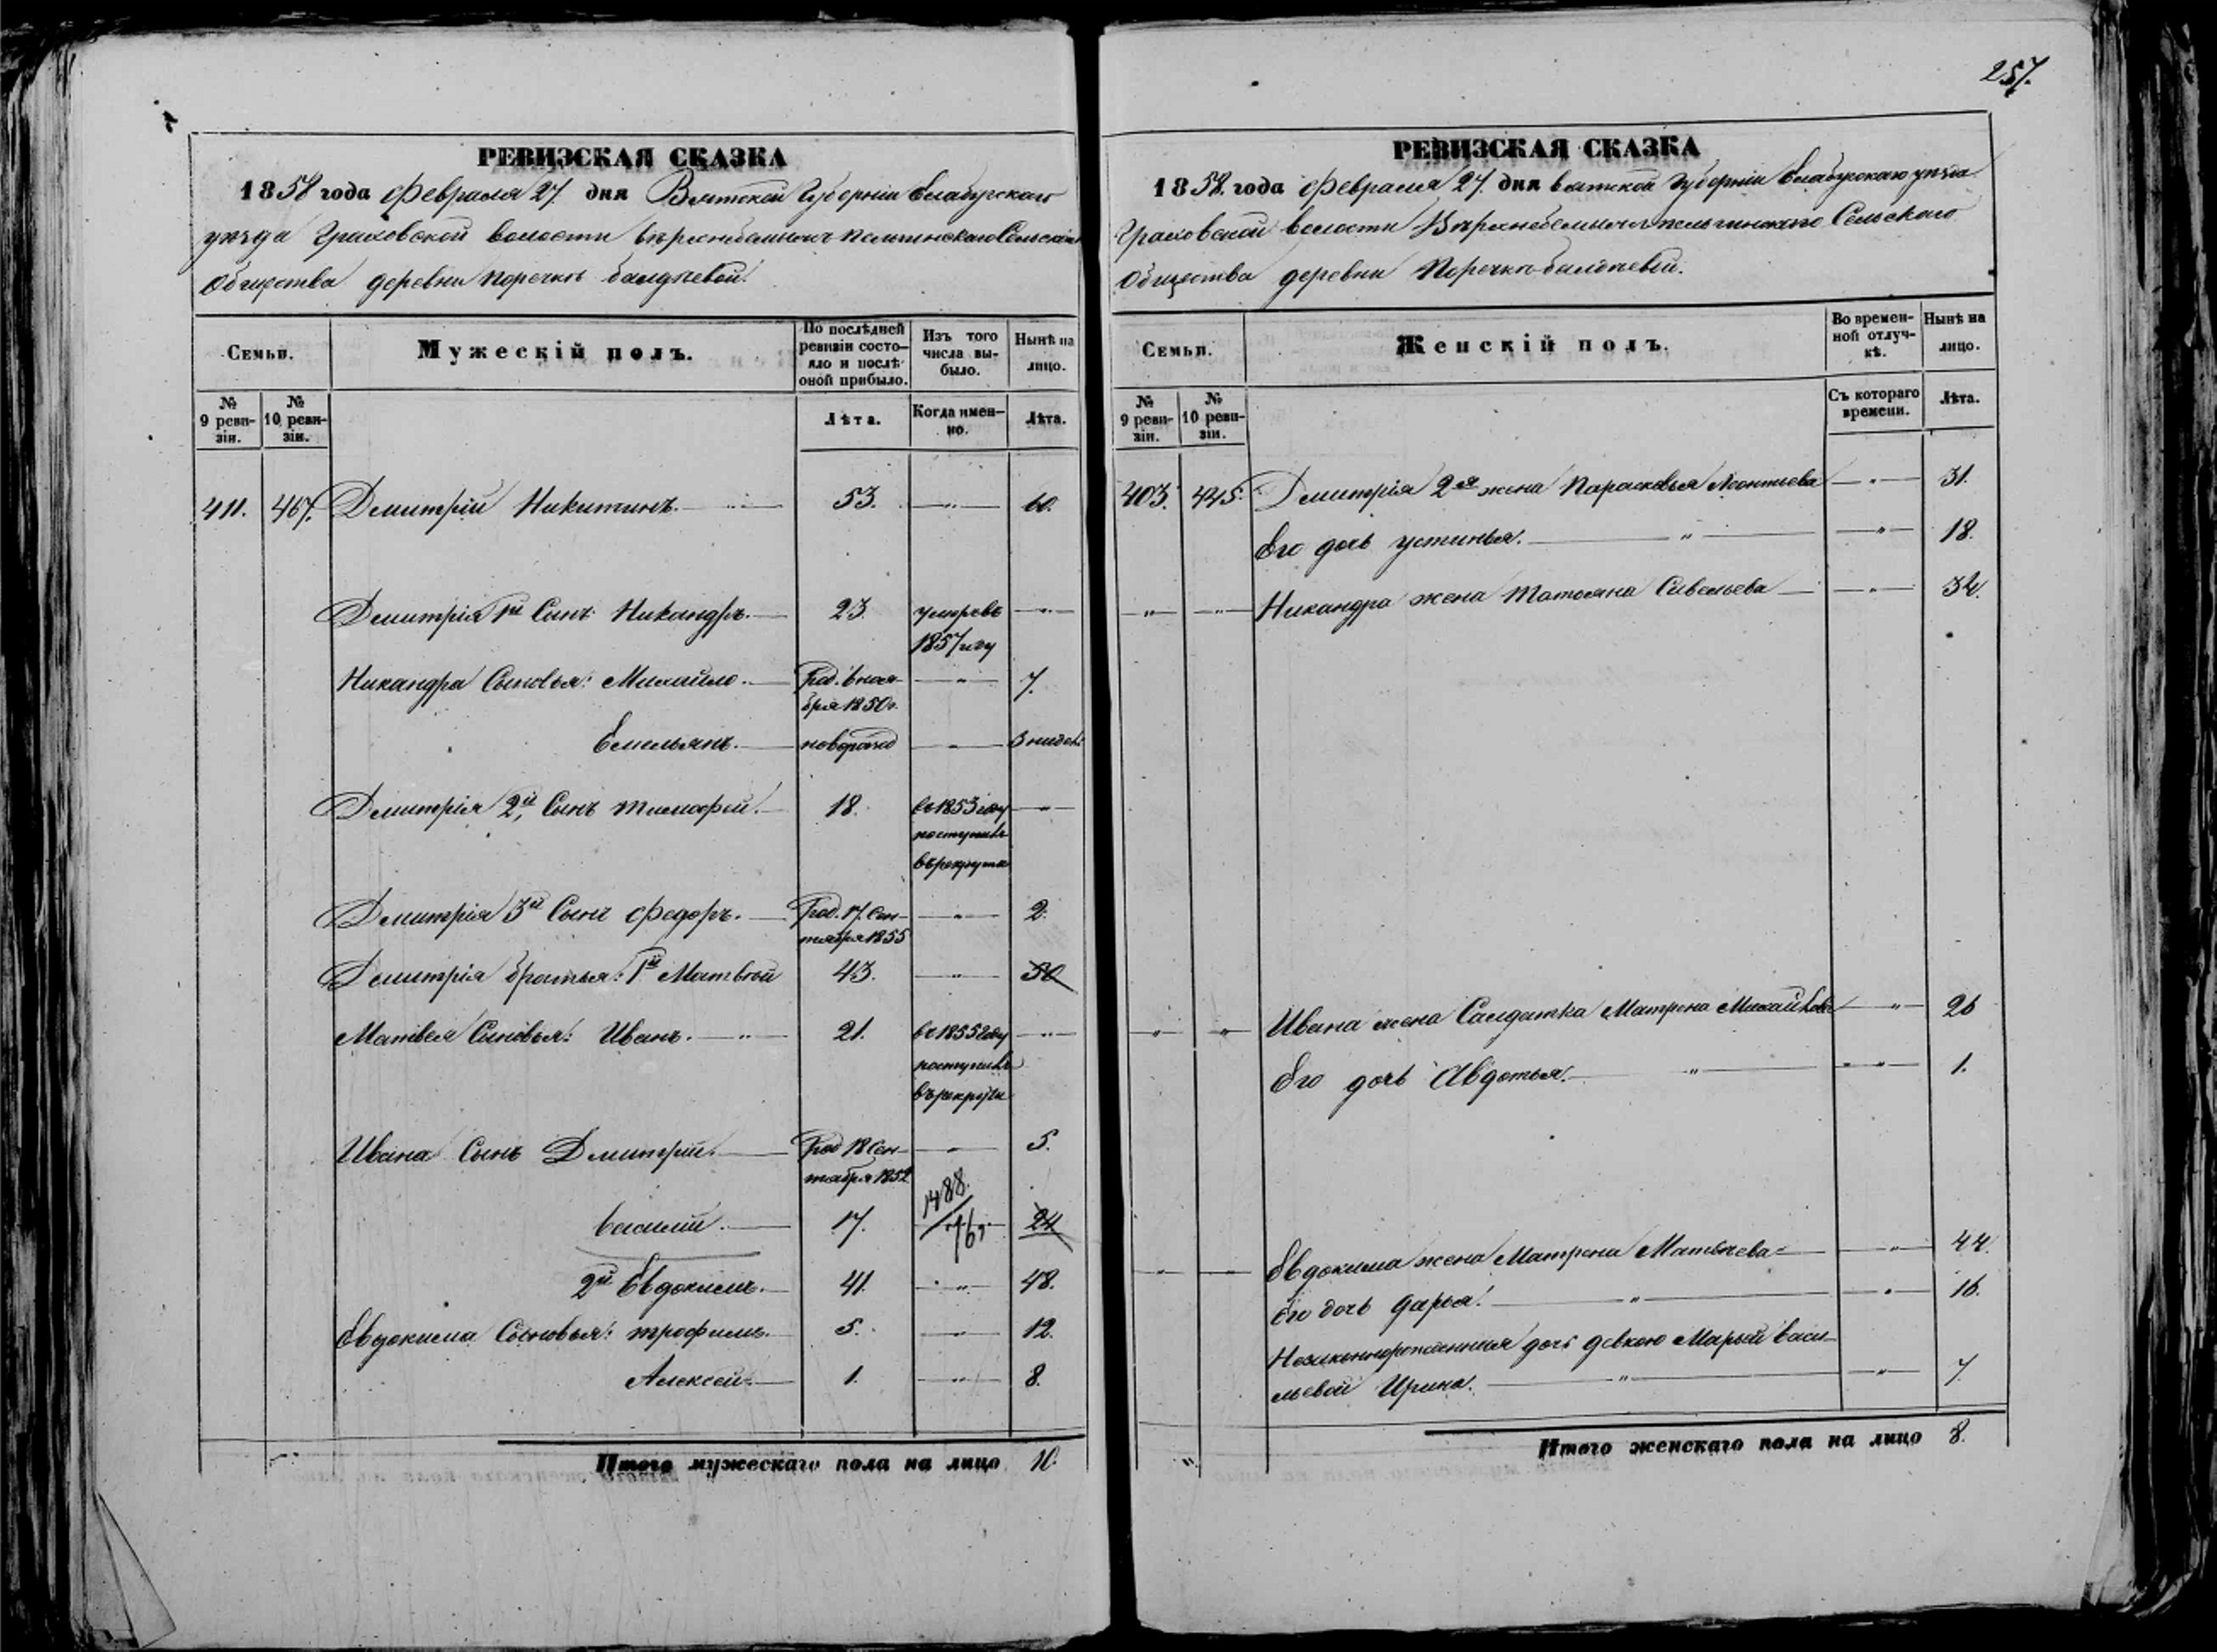 РЕВИЗСКАЯ СКАЗКА
1858 года Февраля 27. дня Вятской Губерніи Елабугскаго
уѣзда Граховской волости Сельскаго
Общества деревни Поречкѣ
Семьи. Мужескій полъ. По послѣдней ревизіи состояло и послѣ оной прибыло. Изъ того числа выбыло. Нынѣ на лицо.
№ 9 ревизіи. № 10 ревизіи. Лѣта. Когда именно. Лѣта.
411. 467. Дмитрій Никитинъ. 53. — " — 60.
Дмитрія 1й Сынъ Никандръ. 23. умеръ въ — " —
1857 году
Никандра Сыновья: Михайло. Род. в ноя- — " — 7.
бря 1850 г.
Емельянъ. новорожд — " — 3 недел:
Дмитрія 2й Сынъ Тимофей. 18. въ 1853 году — " —
поступилъ
въ рекруты
Дмитрія 3й Сынъ Федоръ. Род. 17. Сен- — " — 2.
тября 1855
Дмитрія братья: 1й Матвѣй 43. — " — 50
Матвея Сыновья: Иванъ. — " — 21. въ 1855 году — " —
поступилъ
въ рекруты
Ивана Сынъ Дмитрій. Род 18 Сен- — " — 5.
тября 1852
1488.
Василій. 17. 24
2й Евдокимъ. 41. — " — 48.
Евдокима Сыновья: Трофимъ. 5. — " — 12.
Алексей. 1. — " — 8.
Итого мужескаго пола на лицо 10.
257.
РЕВИЗСКАЯ СКАЗКА
1858. года Февраля 27. дня Вятской Губерніи Елабугскаго уѣзда
Граховской волости Сельскаго
Общества деревни Поречкѣ
Семьи. Женскій полъ. Во временной отлучкѣ. Нынѣ на лицо.
№ 9 ревизіи. № 10 ревизіи. Съ котораго времени. Лѣта.
403. 445. Дмитрія 2я жена Парасковья Леонтиева — " — 31.
Его дочь Устинья. — " — — " — 18.
— " — — " — Никандра жена Татьяна Савельева — " — 32.
" " Ивана жена Салдатка Матрена Михайлова — " — 26
Его дочь Авдотья. — " — — " — 1.
— " — — " — Евдокима жена Матрена Матвѣева — " — 44.
Его дочь Дарья. — " — — " — 16.
Незаконнорожденная дочь девкою Марьей Васи-
льевой Ирина. — " — — " — 7.
Итого женскаго пола на лицо 8.